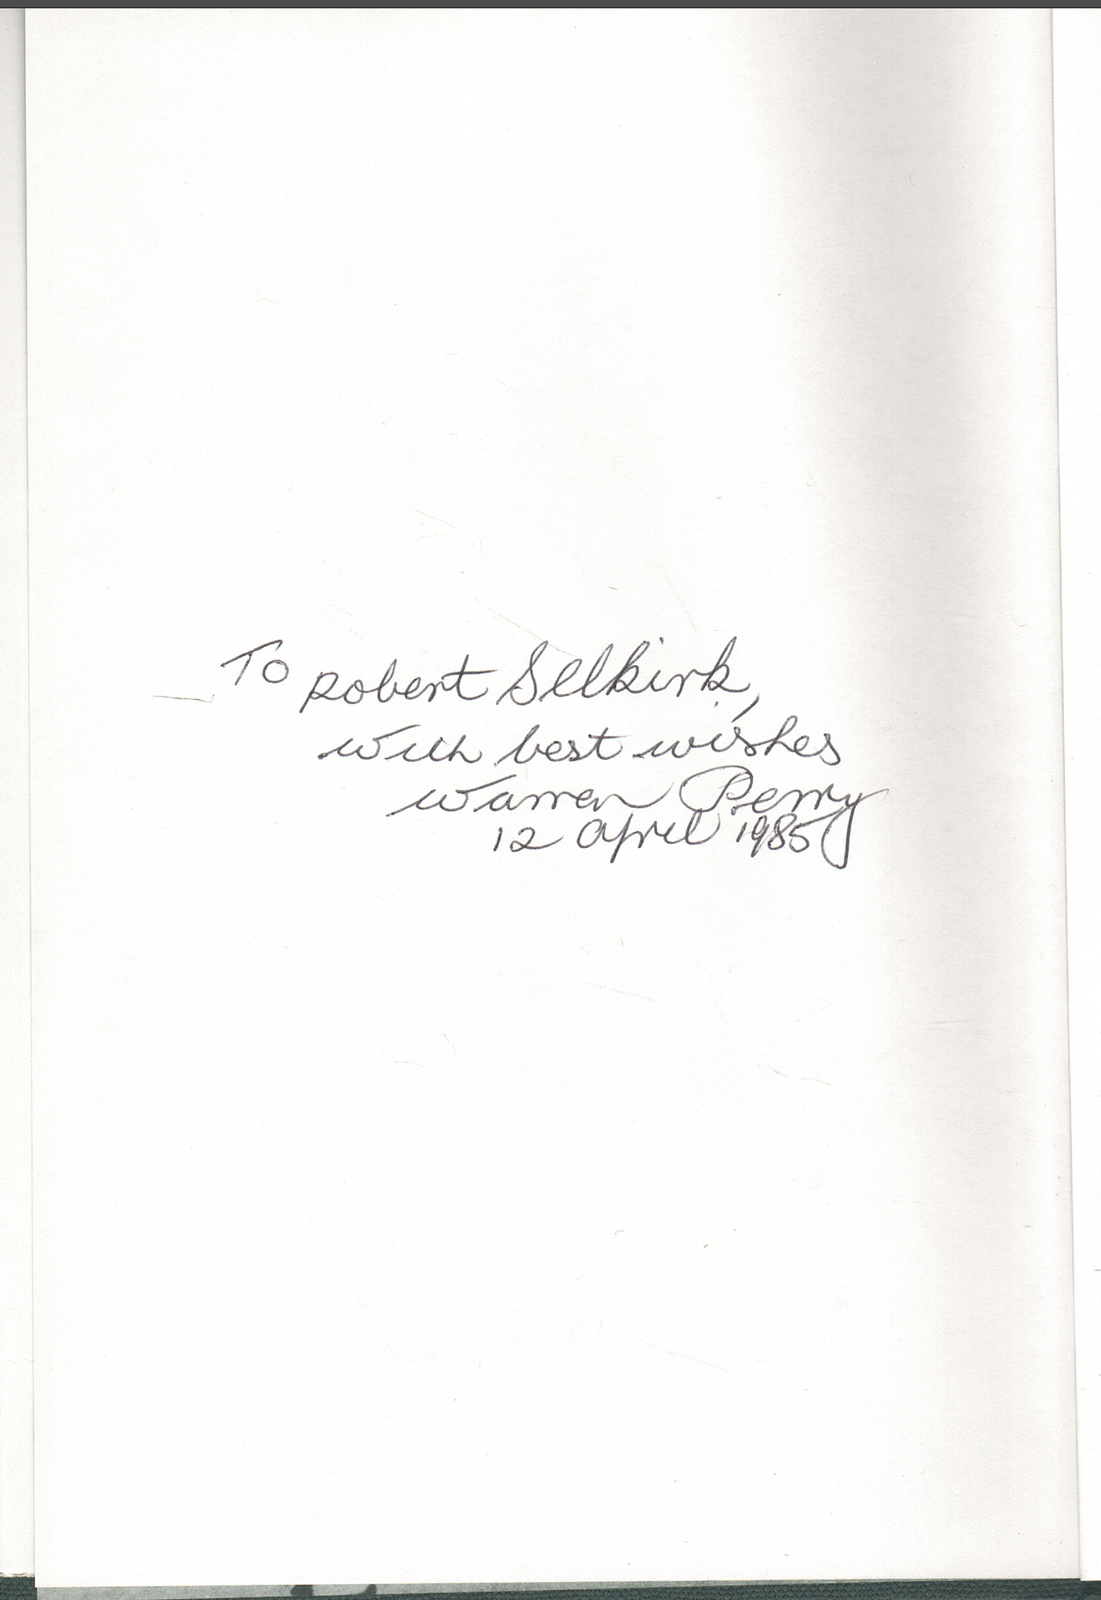 To Robert Selkirk,
with best wishes
Warren Perry
12 April 1985